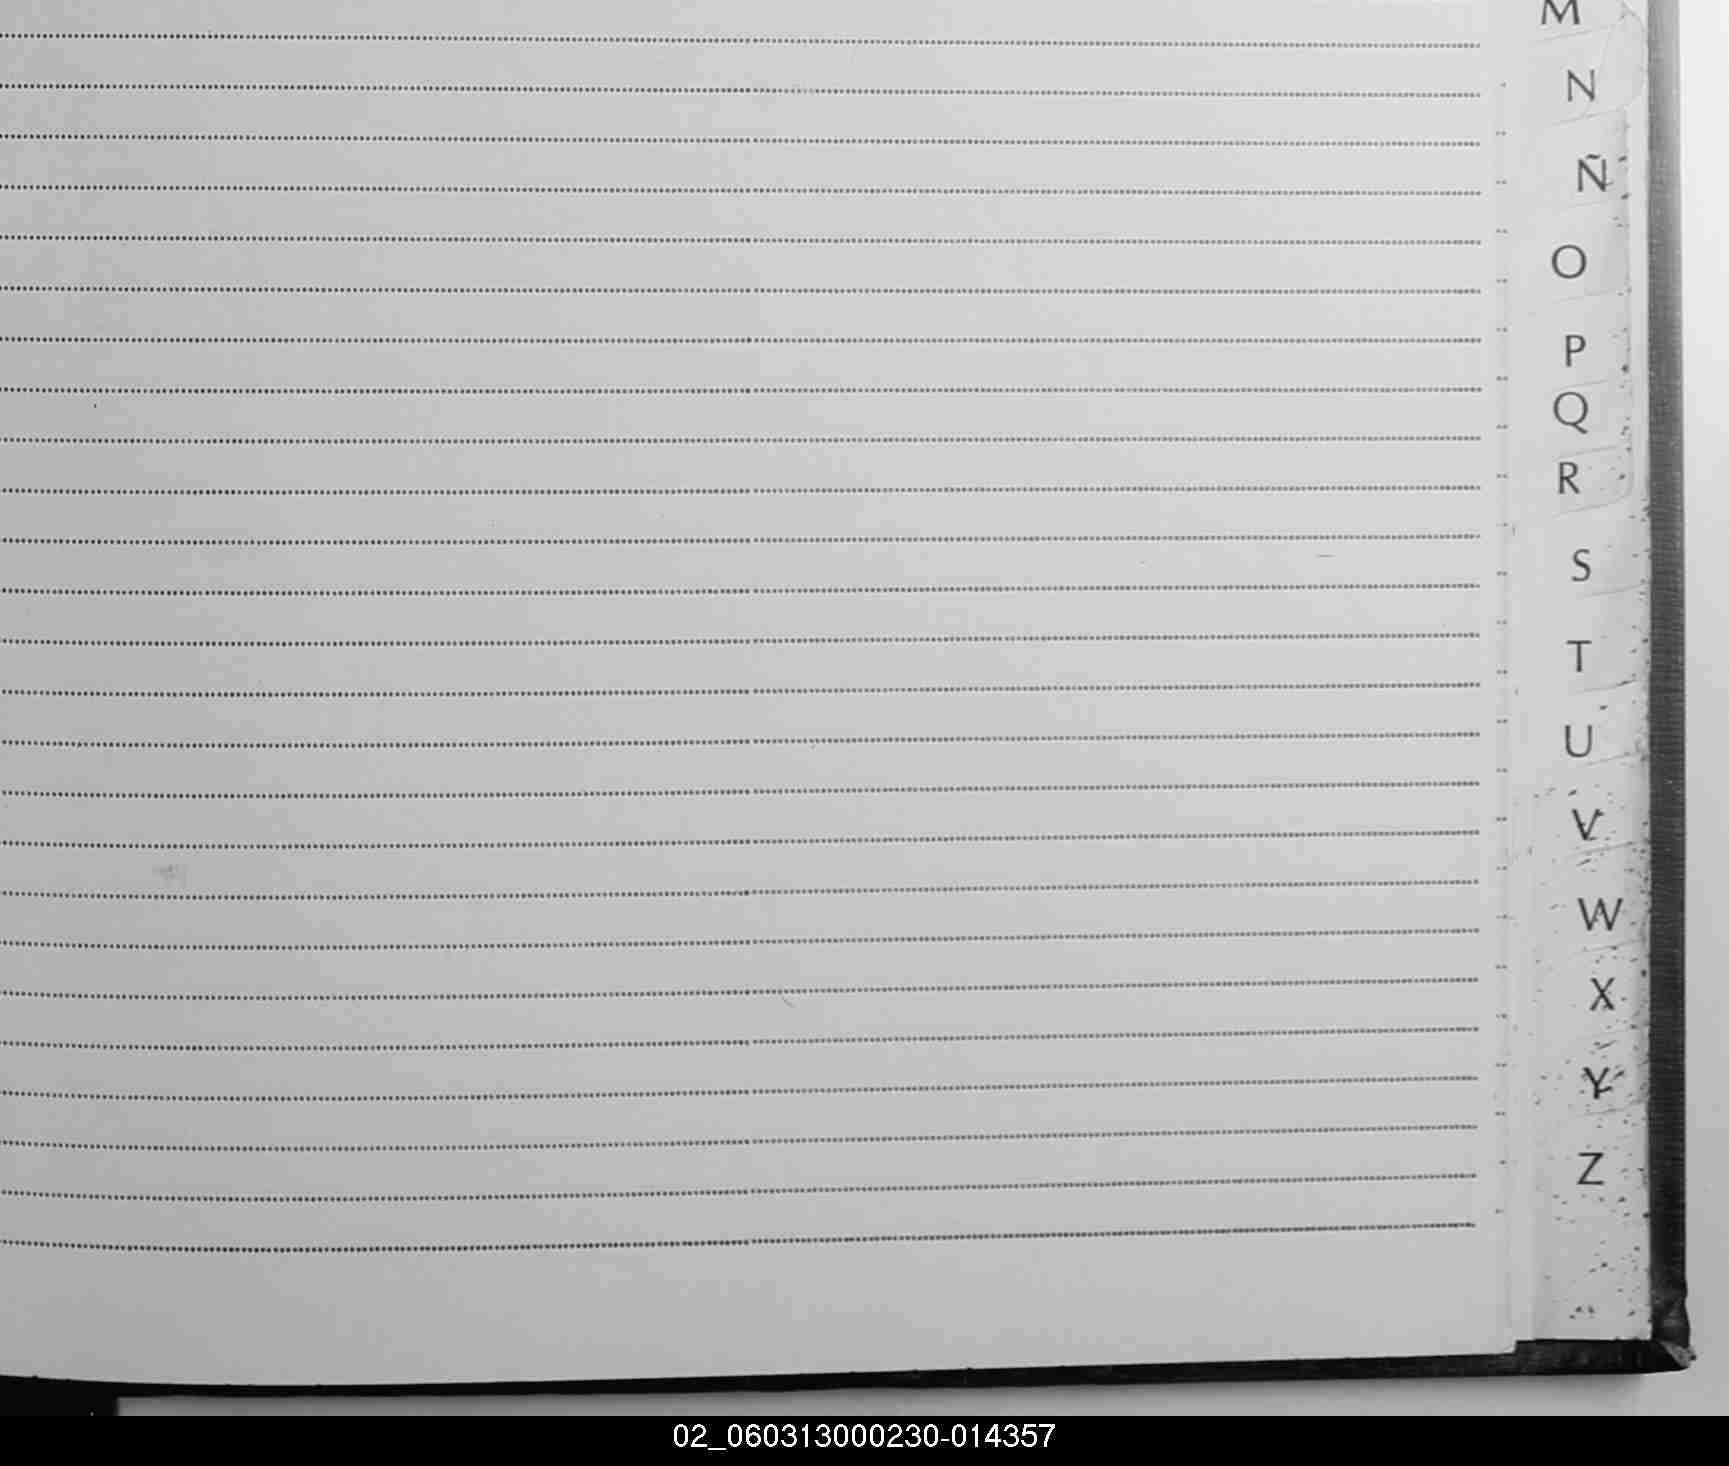 M
N
Ñ
O
P
Q
R
S
T
U
V
W
X
Y
Z
02_060313000230-014357